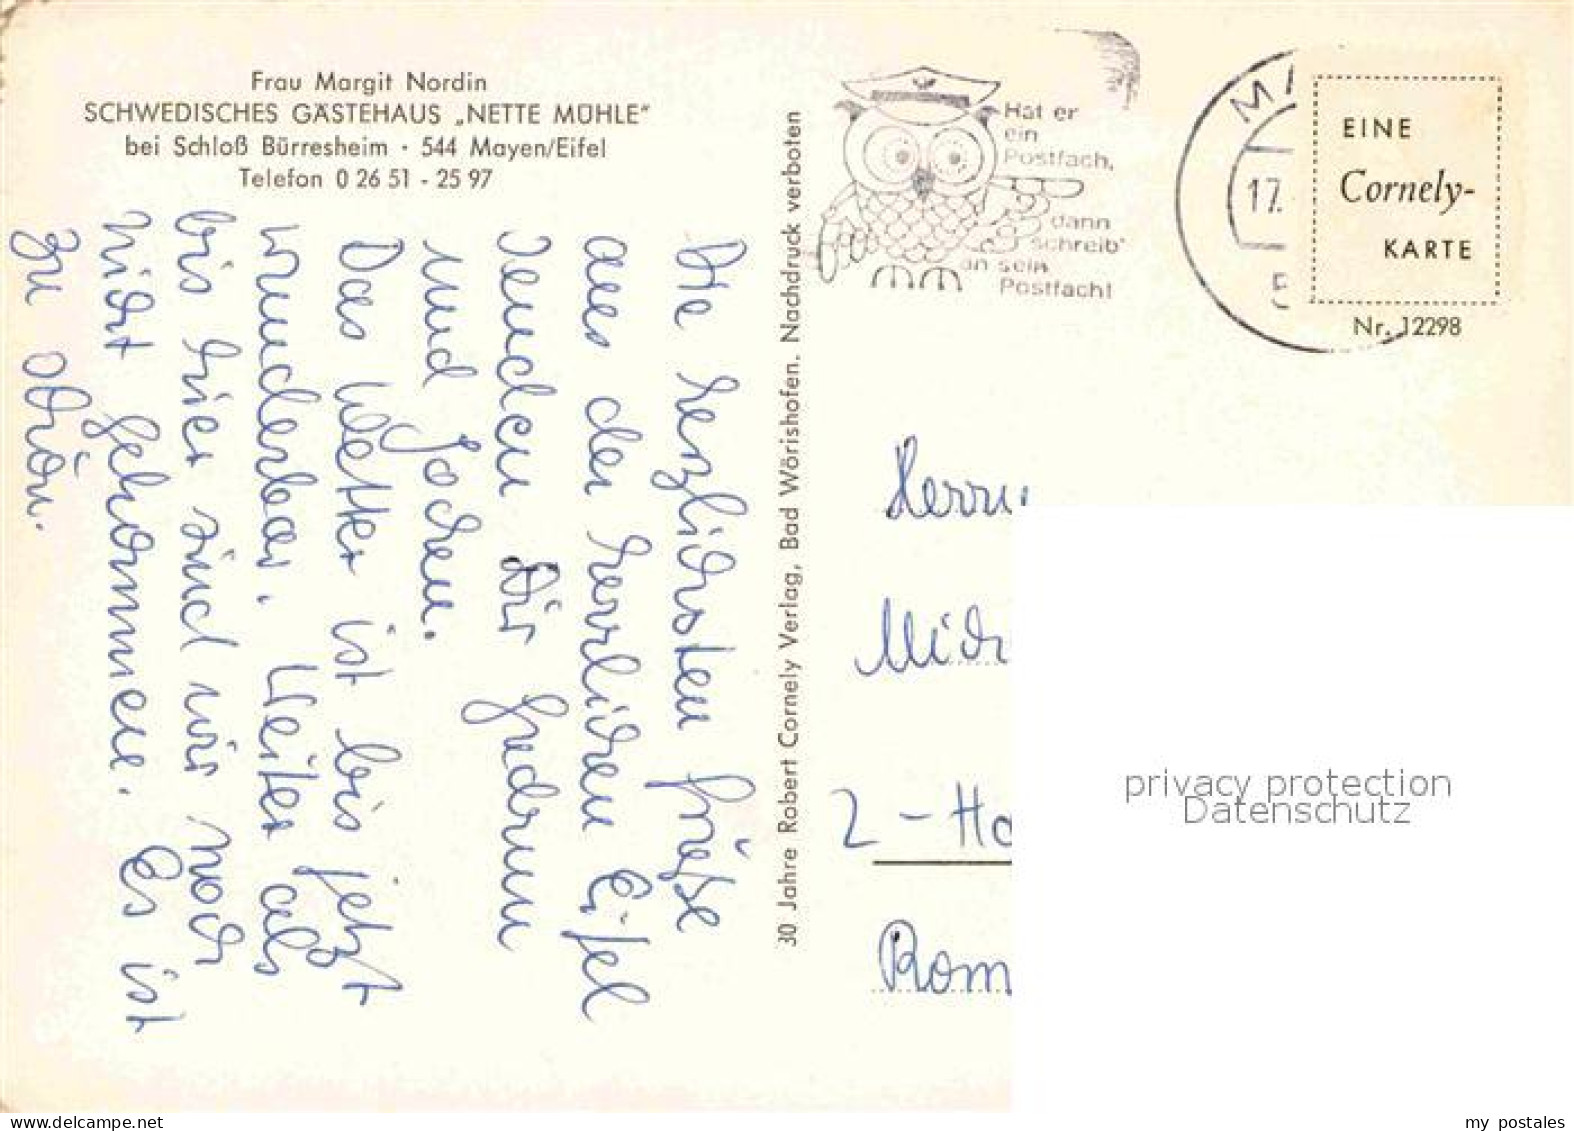 Frau Margit Nordin
SCHWEDISCHES GÄSTEHAUS „NETTE MÜHLE“
bei Schloß Bürresheim · 544 Mayen/Eifel
Telefon 0 26 51 - 25 97
Die herzlichsten Grüße
aus der herrlichen Eifel
senden Dir Gudrun
und Jochen.
Das Wetter ist bis jetzt
wunderbar. Weiter als
bis hier sind wir noch
nicht gekommen. Es ist
zu schön.
30 Jahre Robert Cornely Verlag, Bad Wörishofen. Nachdruck verboten
Hat er
ein
Postfach,
dann
schreib'
an sein
Postfach!
MA
17.
5
EINE
Cornely-
KARTE
Nr. 12298
Herrn
Mich
2 - Ha
Rom
privacy protection
Datenschutz
my postales